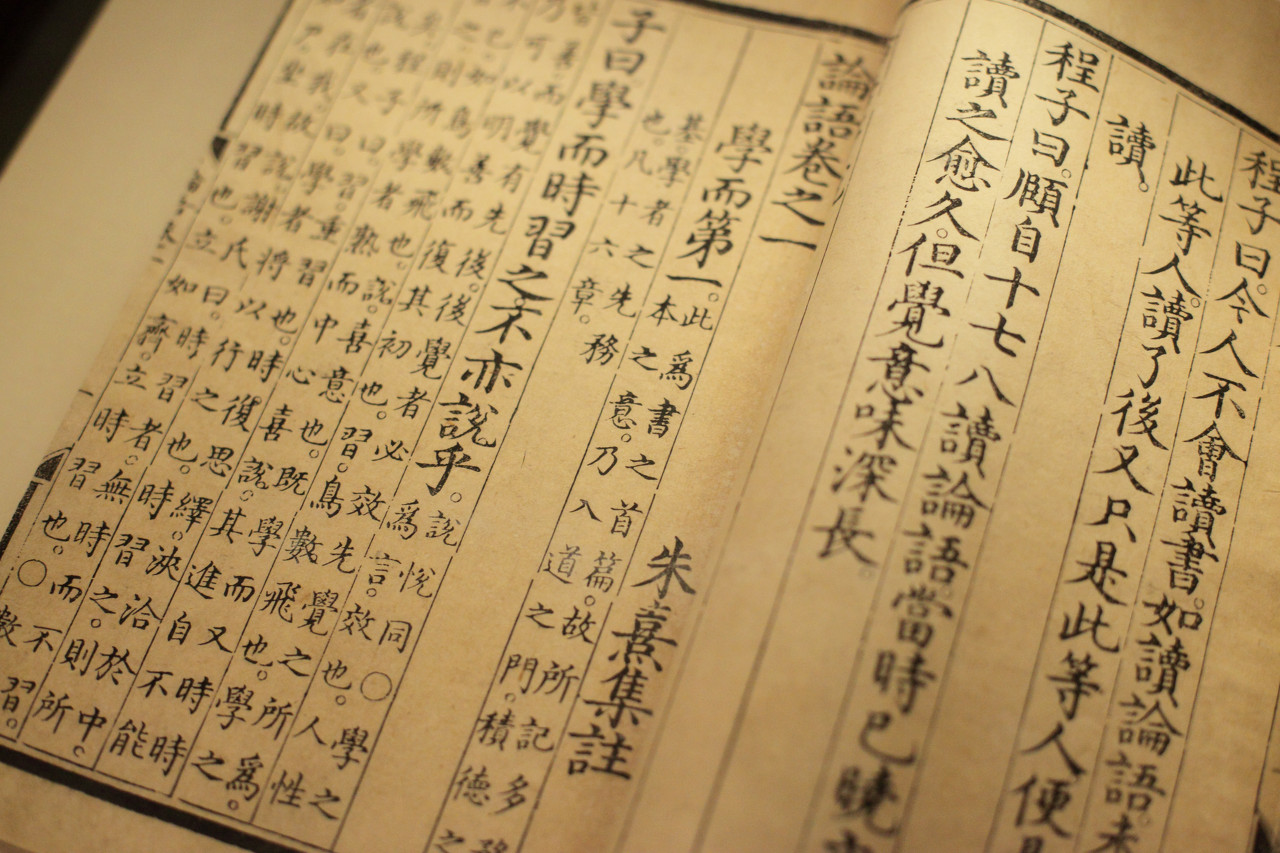 程子曰。今人不會讀書。如讀論語。未
此等人。讀了後又只是此等人便是
讀。
程子曰。頤自十七八讀論語。當時已曉
讀之愈久。但覺意味深長。
論語卷之一
朱熹集註
學而第一。此爲書之首篇。故所記多務
本之意。乃入道之門。積德之
基。學者之先務
也。凡十六章。
子曰學而時習之。不亦說乎。說悅同○學之
爲言。效也。人性
皆善。而覺有先後。後覺者必效先覺之所爲。
乃可以明善而復其初也。習。鳥數飛也。學之
不已。如鳥數飛也。說。喜意也。既學而又時
時習之。則所學者熟。而中心喜說。其進自不能
矣。程子曰。習重習也。時復思繹。浹洽於中。則
說也。又曰。學者將以行之也。時習之。則所
在我。故說。謝氏曰。時習者。無時而不習。
尸。坐時習也。立如齊。立時習也。○